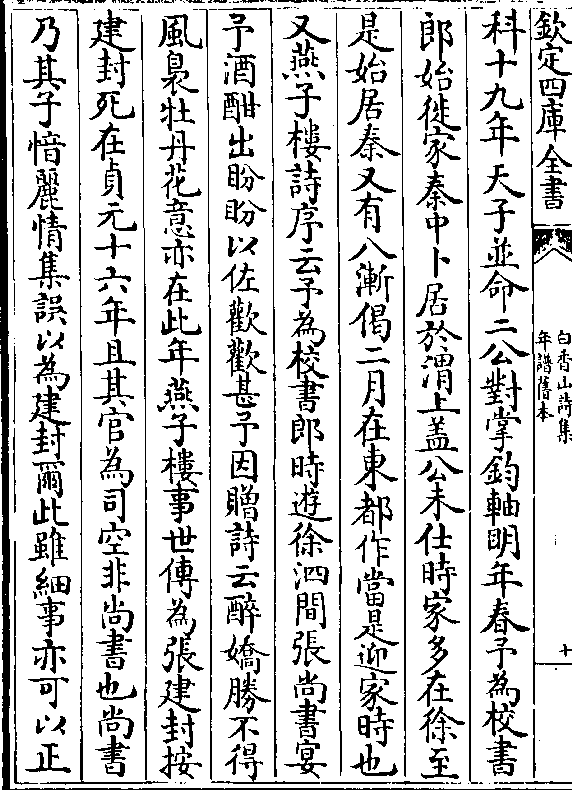 欽定四庫全書
白香山詩集
年譜舊本
十
科十九年天子並命二公對掌鈞軸明年春予為校書
郎始徙家秦中卜居於渭上盖公未仕時家多在徐至
是始居秦又有八漸偈二月在東都作當是迎家時也
又燕子樓詩序云予為校書郎時遊徐泗間張尚書宴
予酒酣出盼盼以佐歡歡甚予因贈詩云醉嬌勝不得
風裊牡丹花意亦在此年燕子樓事世傳為張建封按
建封死在貞元十六年且其官為司空非尚書也尚書
乃其子愔麗情集誤以為建封爾此雖細事亦可以正